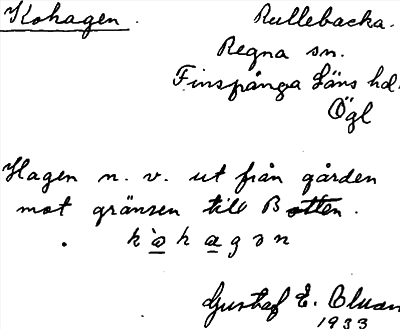 Kohagen.
Rullebacka.
Regna sn.
Finspånga läns hd.
Ögl
Hagen n. v. ut från gården
mot gränsen till Botten.
. kòhagən
Gustaf E. Bluan
1933